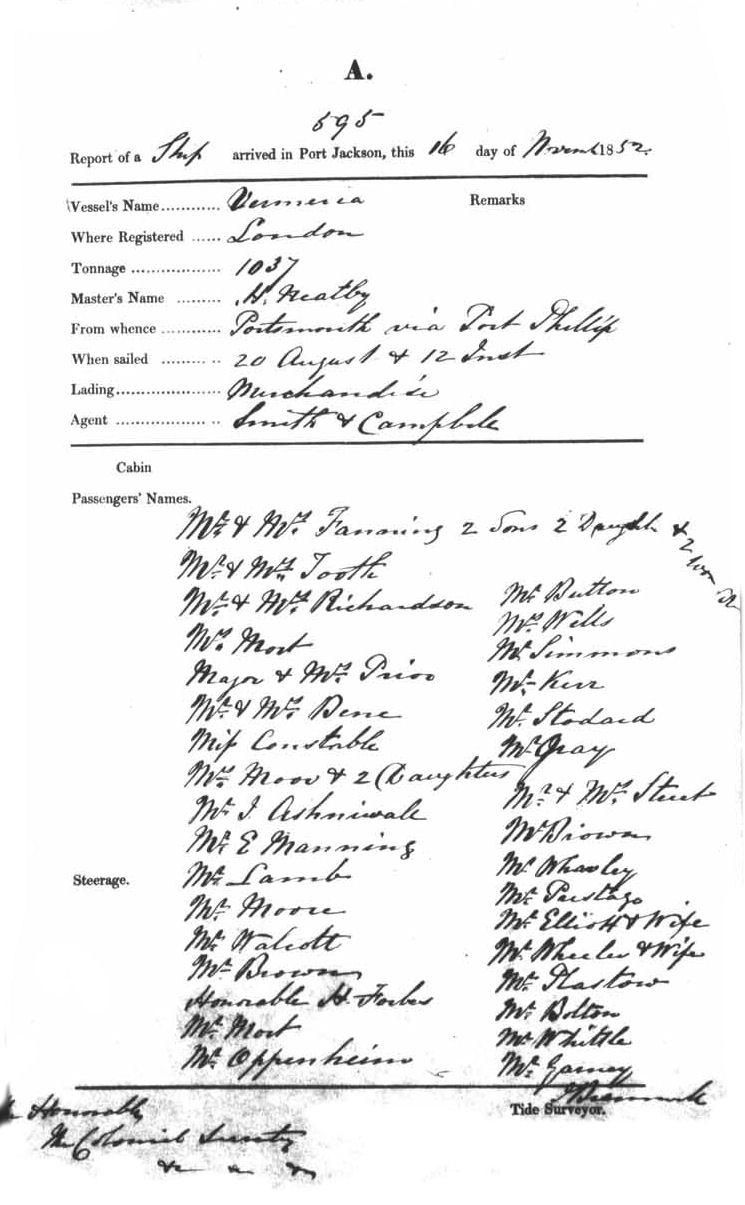 A.
595
Report of a Ship arrived in Port Jackson, this 16 day of Novemb 1852.
Vessel's Name............ Vimeria
Remarks
Where Registered ...... London
Tonnage .................. 1037
Master's Name ......... H. Neatby
From whence ............ Portsmouth via Port Phillip
When sailed ......... .. 20 August & 12 Inst
Lading..................... Merchandise
Agent .................. .. Smith & Campbell
Cabin
Passengers' Names.
Mr. & Mrs. Fanning 2 Sons 2 Daught & 2
Mr. & Mrs. Tooth
Mr. & Mrs. Richardson
Mrs. Mort
Major & Mrs. Prior
Mr. & Mrs. Bene
Miss Constable
Mrs. Moor & 2 Daughters
Mr. J. Ashniwale
Mr. E Manning
Steerage.
Mr. Lamb
Mr. Moore
Mr. Walcott
Mr. Brown
Honorable H. Forbes
Mr. Mort
Mr. Oppenheim
Mr. Button
Mrs. Wells
Mr. Simmons
Mr. Kerr
Mr. Stodard
Mr. Gray
Mr. & Mrs. Street
Mr. Brown
Mr. Wharley
Mr. Prestage
Mr. Elliott & Wife
Mr. Wheeler & Wife
Mr. Plastow
Mr. Bolton
Mr. Whittle
Mr. Garney
Tide Surveyor.
Honorable
The Colonial Secrety